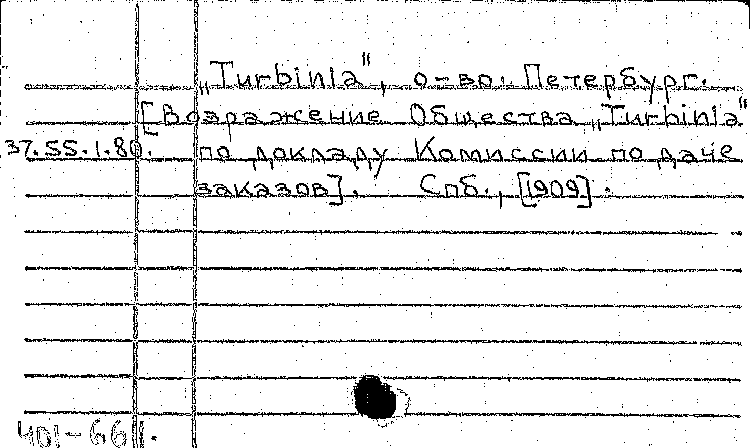 „Turbinia", о-во. Петербург.
[Возражение Общества „Turbinia"
37.55.1.80. по докладу Комиссии по даче
заказов]. Спб., [1909].
401-66